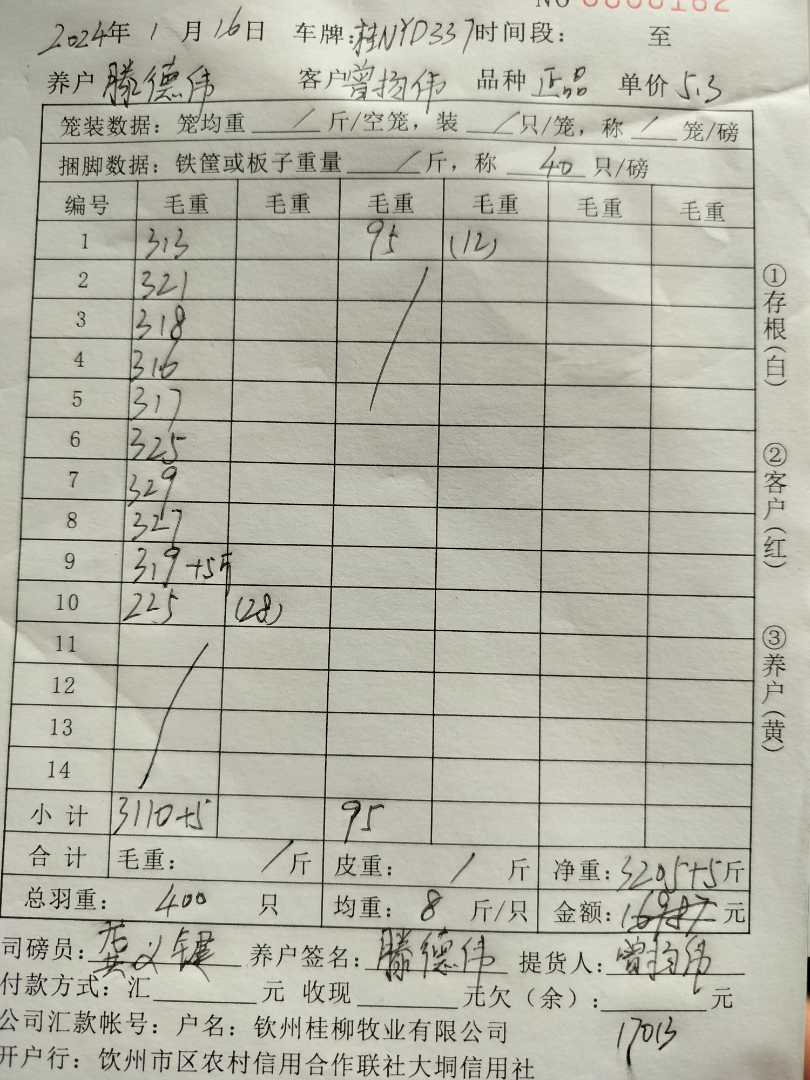 NO 0000162
2024年 1 月 16日 车牌:桂NYD337时间段: 至
养户 滕德伟 客户曾扬伟 品种 正品 单价 5.3
笼装数据: 笼均重 / 斤/空笼, 装 / 只/笼, 称 / 笼/磅
捆脚数据: 铁筐或板子重量 / 斤, 称 40 只/磅
编号 毛重 毛重 毛重 毛重 毛重 毛重
1 313 95 (12)
2 321
3 318
4 316
5 317
6 325
7 329
8 327
9 319+5斤
10 225 (28)
11
12
13
14
小 计 3110+5 95
合 计 毛重: / 斤 皮重: / 斤 净重: 3205+5斤
总羽重: 400 只 均重: 8 斤/只 金额: 元
司磅员: 龚义键 养户签名: 滕德伟 提货人: 曾扬伟
付款方式: 汇 元 收现 元欠(余): 元
17013
公司汇款帐号: 户名: 钦州桂柳牧业有限公司
开户行: 钦州市区农村信用合作联社大垌信用社
①存根(白)
②客户(红)
③养户(黄)